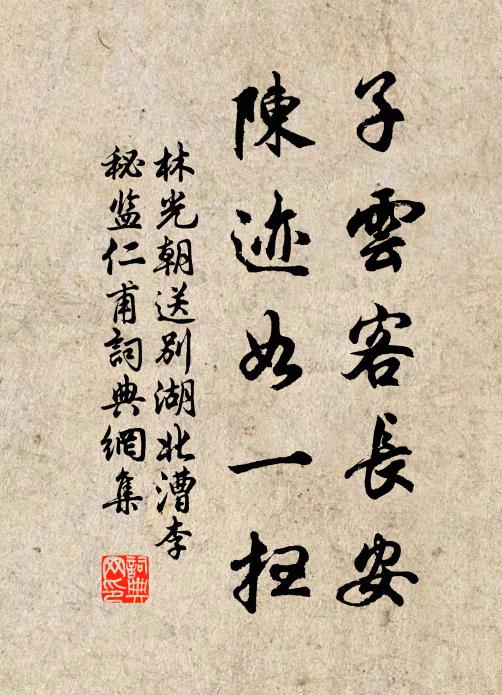 子雲客長安
陳迹如一扫
林光朝送別湖北漕李
秘监仁甫詞典網集
詞典网印